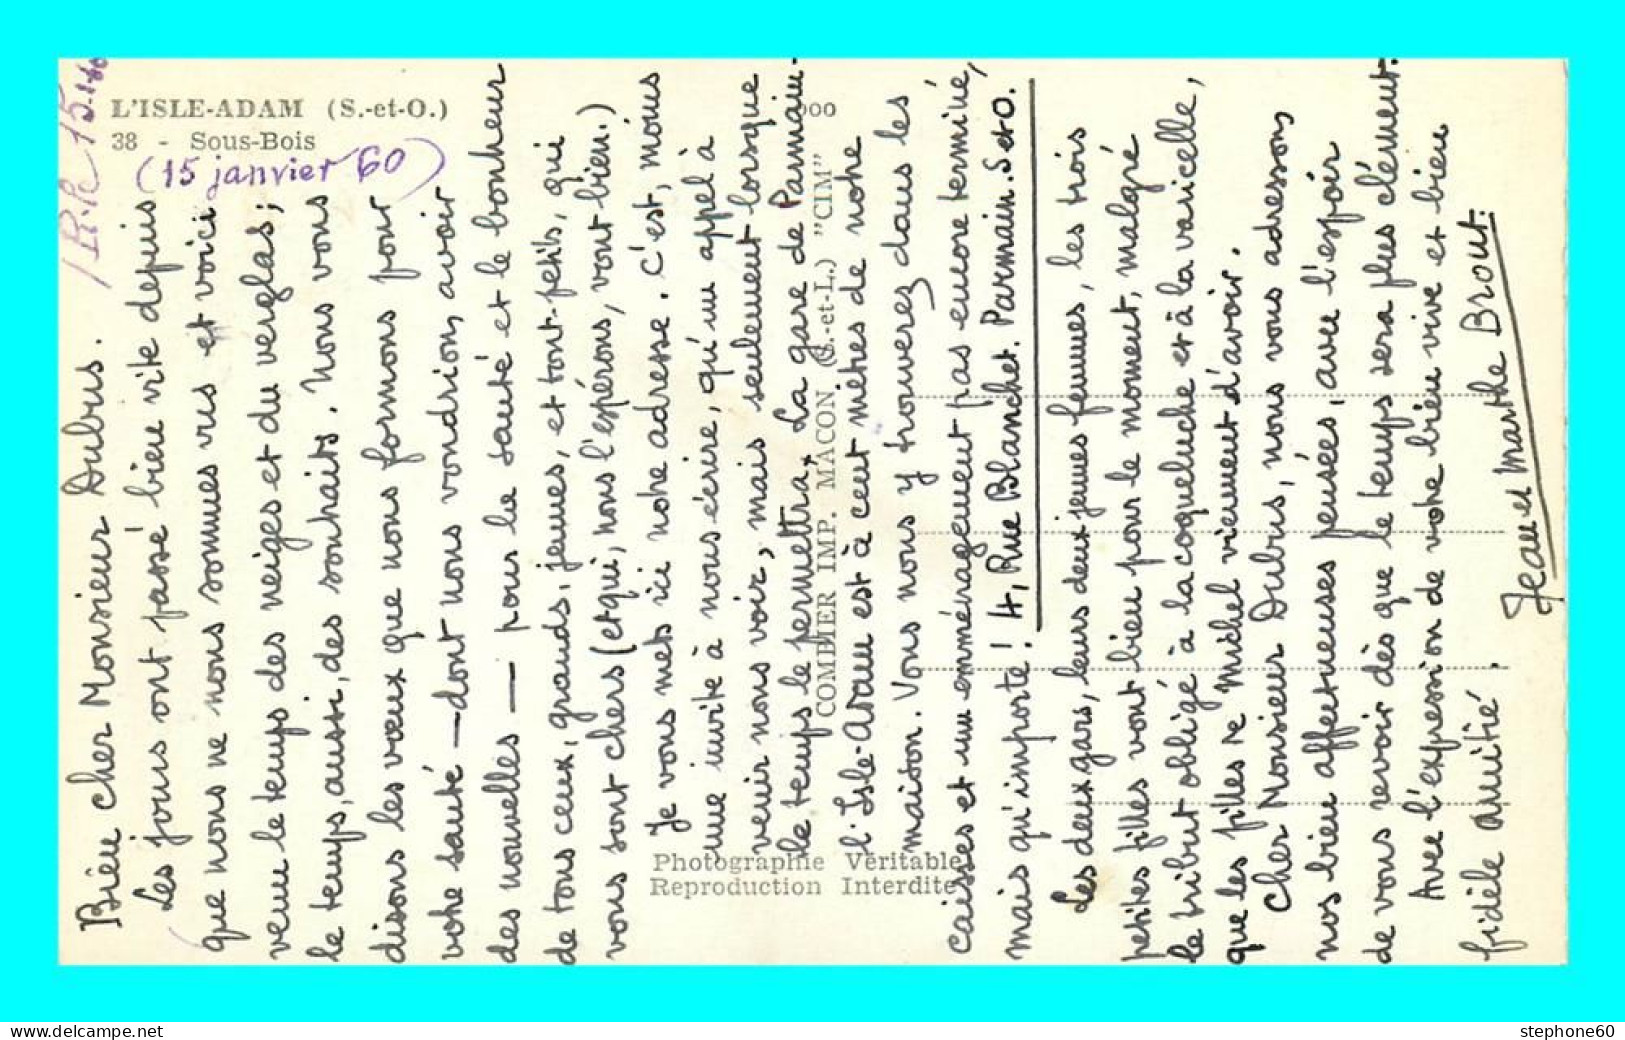 L'ISLE-ADAM (S.-et-O.)
38 - Sous-Bois
(15 janvier 60)
Bien cher Monsieur Dubus.
Les jours ont passé bien vite depuis
que nous ne nous sommes vus et voici
venu le temps des neiges et du verglas;
le temps, aussi, des souhaits. Nous vous
disons les vœux que nous formons pour
votre santé — dont nous voudrions avoir
des nouvelles — pour la santé et le bonheur
de tous ceux, grands, jeunes, et tout-petits, qui
vous sont chers (et qui, nous l'espérons, vont bien.)
Je vous mets ici notre adresse. C'est, moins
une invite à nous écrire, qu'un appel à
venir nous voir, mais seulement lorsque
le temps le permettra. La gare de Parmain-
l'Isle-Adam est à cent mètres de notre
maison. Vous nous y trouverez dans les
caisses et un emménagement pas encore terminé,
mais qu'importe! 4, Rue Blanchet. Parmain. S et O.
Les deux gars, leurs deux jeunes femmes, les trois
petites filles vont bien pour le moment, malgré
le tribut obligé à la coqueluche et à la varicelle,
que les filles de Michel viennent d'avoir.
Cher Monsieur Dubus, nous vous adressons
nos bien affectueuses pensées, avec l'espoir
de vous revoir dès que le temps sera plus clément.
Avec l'expression de votre bien vive et bien
fidèle amitié.
Jean et Marthe Brout.
COMBIER IMP. MACON (S.-et-L.) "CIM"
Photographie Véritable
Reproduction Interdite
stephone60